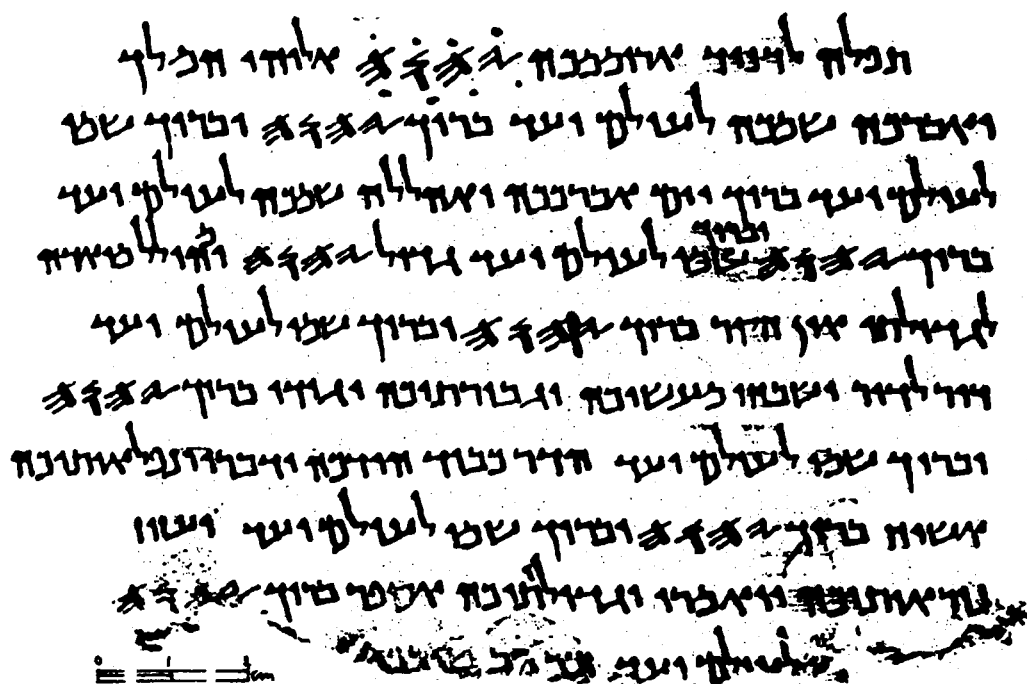 תפלה לדויד ארוממכה 𐤉𐤄𐤅𐤄 אלוהי המלך
ואברכה שמכה לעולם ועד ברוך 𐤉𐤄𐤅𐤄 וברוך שמו
לעולם ועד ברוך יום אברככה ואהללה שמכה לעולם ועד
ברוך 𐤉𐤄𐤅𐤄 וברוך שמו לעולם ועד גדול 𐤉𐤄𐤅𐤄 ומהולל מאודה
לגדולתו אין חקר ברוך 𐤉𐤄𐤅𐤄 וברוך שמו לעולם ועד
דור לדור ישבחו מעשיכה וגבורתיכה יגידו ברוך 𐤉𐤄𐤅𐤄
וברוך שמו לעולם ועד הדר כבוד הודכה ודברי נפלאותיכה
אשיח ברוך 𐤉𐤄𐤅𐤄 וברוך שמו לעולם ועד ועזוז
נוראותיכה יואמרו וגדולתיכה אספר ברוך 𐤉𐤄𐤅𐤄
לעולם ועד
0 1 cm